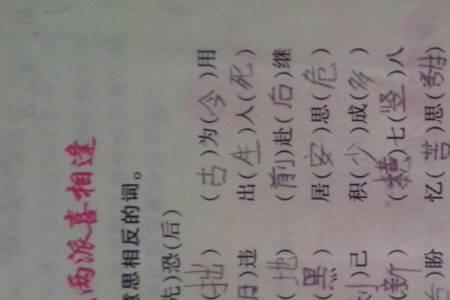 两派喜相逢
意思相反的词。
先)恐(后)
(拙) (古)为(今)用
)违 出(生)入(死)
(地) (前)赴(后)继
(黑) 居(安)思(危)
)己 积(少)成(多)
(新) (横)七(竖)八
)盼 忆(苦)思(甜)